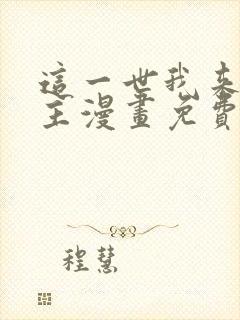 這一世我來
主漫畫免費
程慧